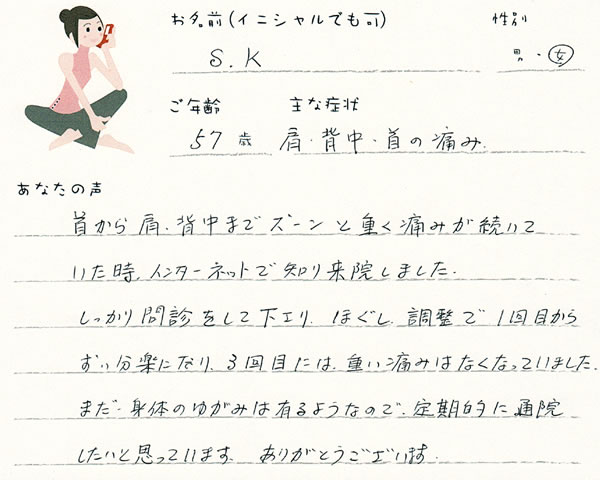 お名前(イニシャルでも可)
性別
S.K
男・女
ご年齢
主な症状
57歳
肩・背中・首の痛み.
あなたの声
首から肩、背中までズーンと重く痛みが続いて
いた時、インターネットで知り来院しました.
しっかり問診をして下エリ、ほぐし、調整で1回目から
ずい分楽になり、3回目には、重い痛みはなくなっていました.
まだ、身体のゆがみは有るようなので、定期的に通院
したいと思っています. ありがとうございます.